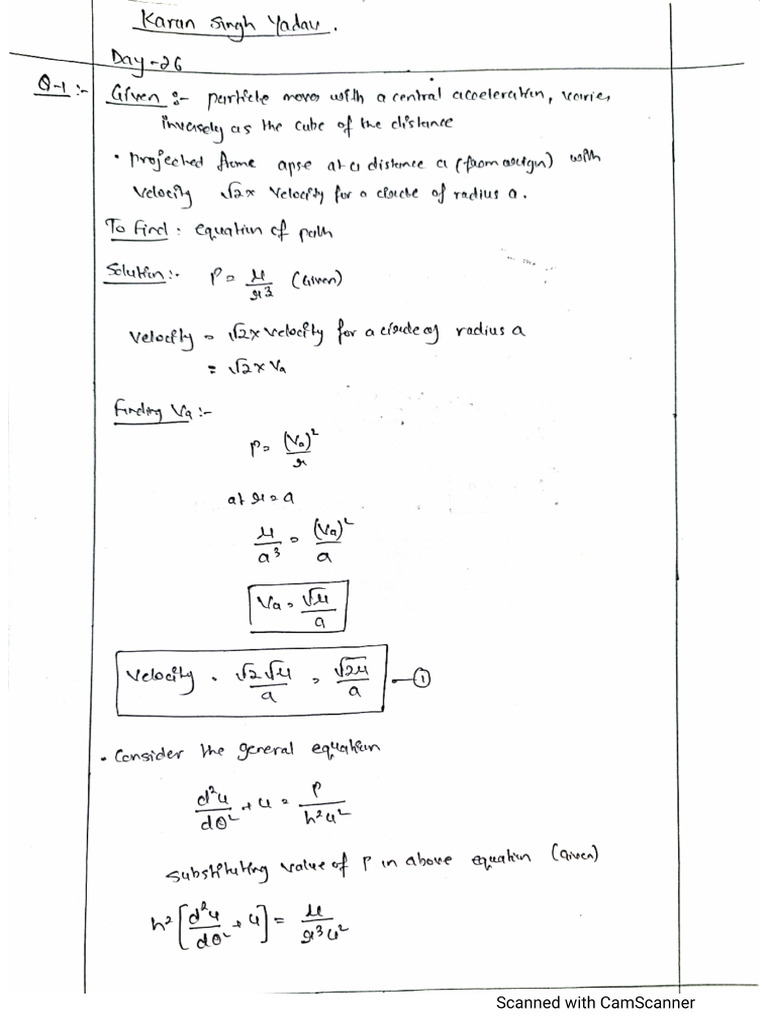 Karan Singh Yadav.
Day-26
Q-1:- Given :- particle moves with a central acceleration, varies
inversely as the cube of the distance
• projected from apse at a distance a (from origin) with
velocity √2 x velocity for a circle of radius a.
To find : equation of path
Solution:- P = μ/r³ (Given)
Velocity = √2 x velocity for a circle of radius a
= √2 x Va
Finding Va :-
P = (Va)²/r
at r = a
μ/a³ = (Va)²/a
Va = √μ/a
Velocity = √2√μ/a = √2μ/a —①
• Consider the general equation
d²u/dθ² + u = P/h²u²
Substituting value of P in above equation (Given)
h²[d²u/dθ² + u] = μ/r³u²
Scanned with CamScanner